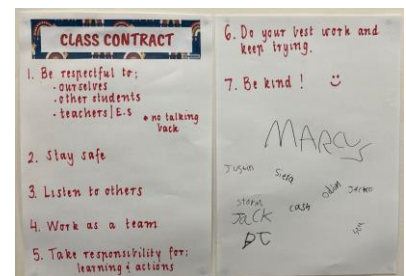 CLASS CONTRACT
1. Be respectful to:
- ourselves
- other students
- teachers/E.S
* no talking
back
2. Stay safe
3. Listen to others
4. Work as a team
5. Take responsibility for:
learning & actions
6. Do your best work and
keep trying.
7. Be kind!
MARCUS
Sierra
Storm
Cash
JACK
DJ